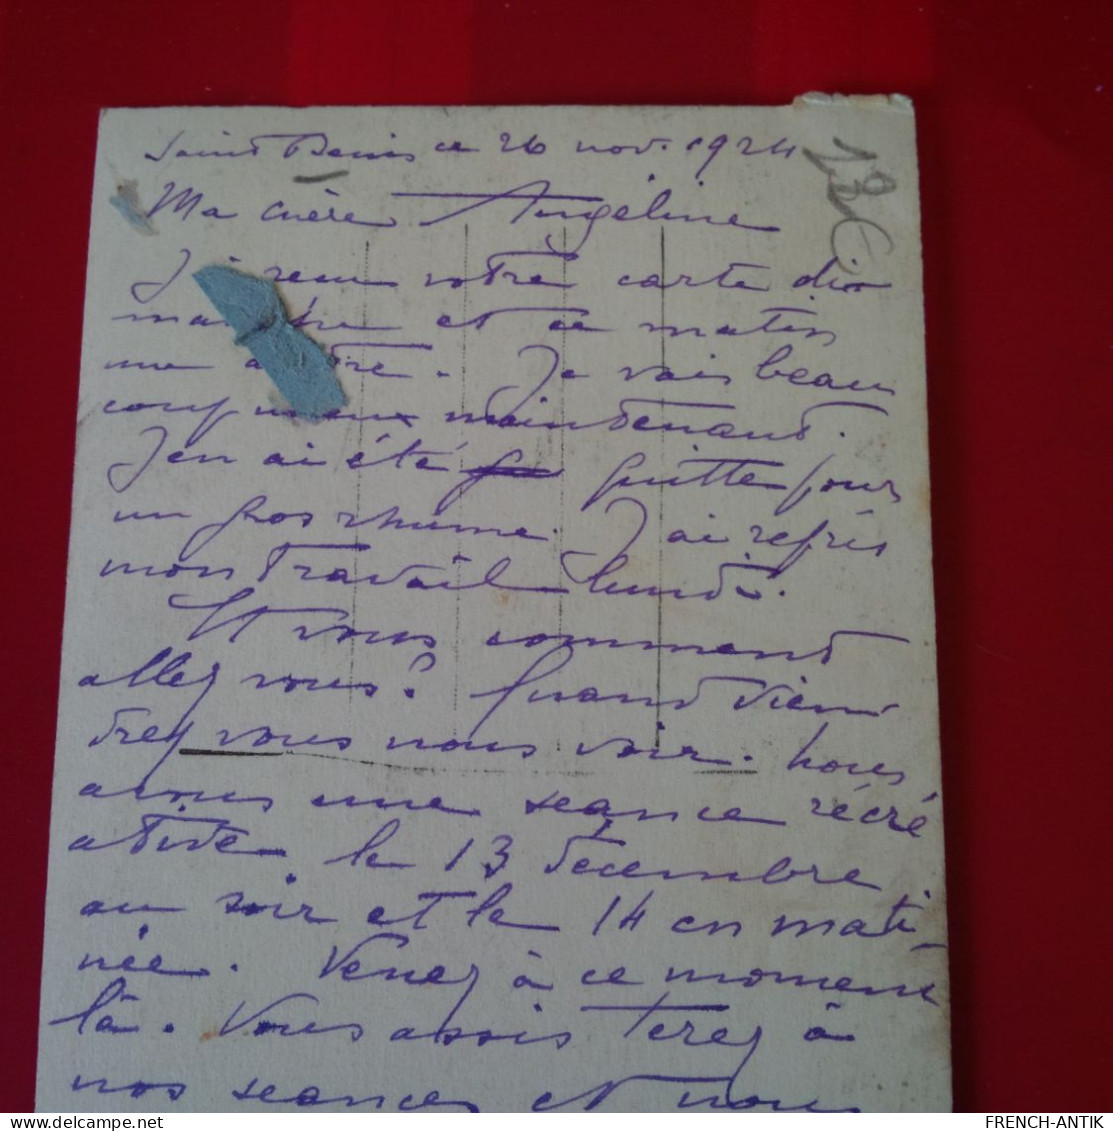 Saint Denis ce 26 nov. 1924
13€
Ma chère Angéline
J'ai reçu votre carte dim
manche et ce matin
une autre. Je vais beau
coup mieux maintenant.
J'en ai été quitte pour
un gros rhume. J'ai repris
mon travail lundi.
Et vous comment
allez vous? Quand vien
drez vous nous voir. Nous
avons une séance récré
ative le 13 décembre
au soir et le 14 en mati-
née. Venez à ce moment
là. Vous assisterez à
nos séances et nous
FRENCH-ANTIK